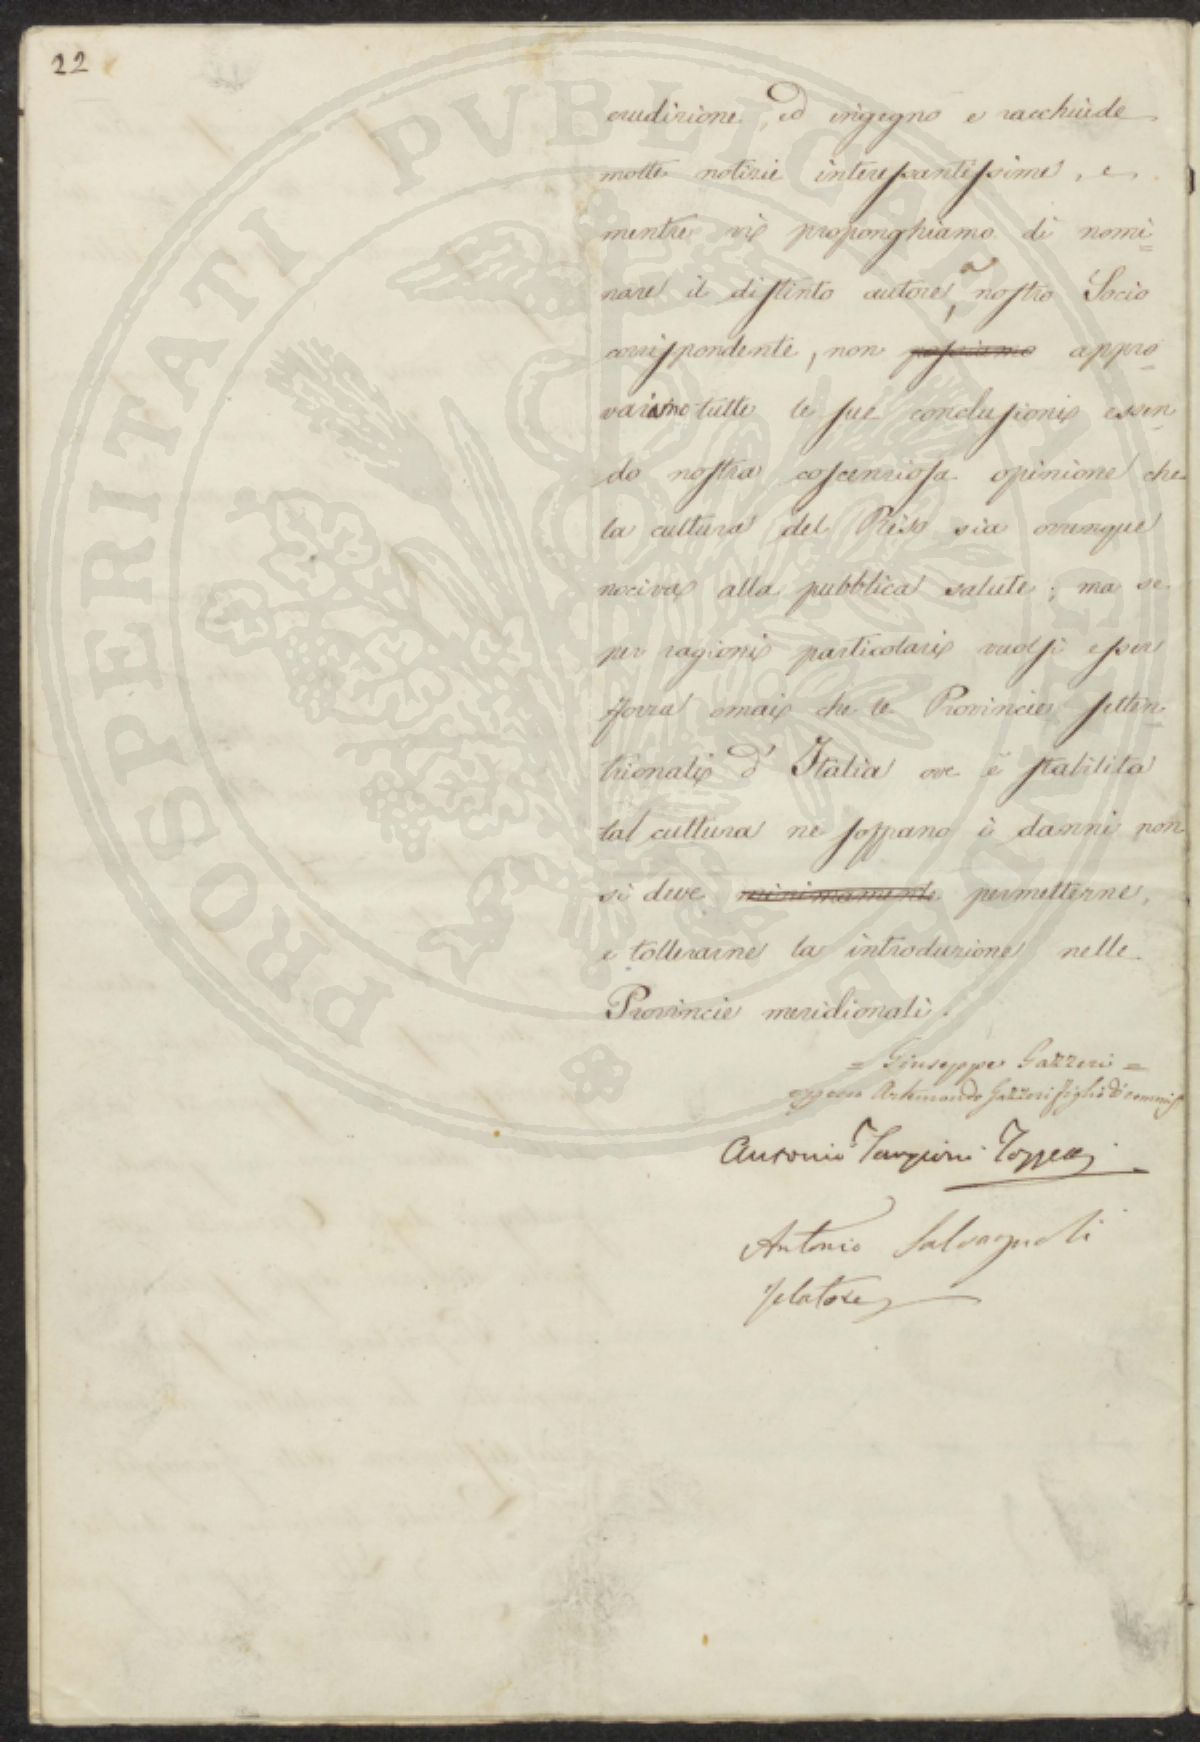 22
erudizione, ed ingegno e racchiude
molte notizie interessantissime, e
mentre vi proponghiamo di nomi=
nare il distinto autore, a nostro Socio
corrispondente, non possiamo appro=
vaiamo tutte le sue conclusioni essen=
do nostra coscenziosa opinione che
la cultura del Riso sia ovunque
nociva alla pubblica salute; ma se
per ragioni particolari vuolsi esser
forza omai che le Provincie setten=
trionali d'Italia ove è stabilita
tal cultura ne soffrano i danni non
si deve minimamente permetterne,
e tollerarne la introduzione nelle
Provincie meridionali.
= Giuseppe Gazzeri =
Gazzeri figlio di
Antonio Targioni Tozzetti
Antonio Salvagnoli
Relatore
PROSPERITATI PVBLICAE AVGENDAE